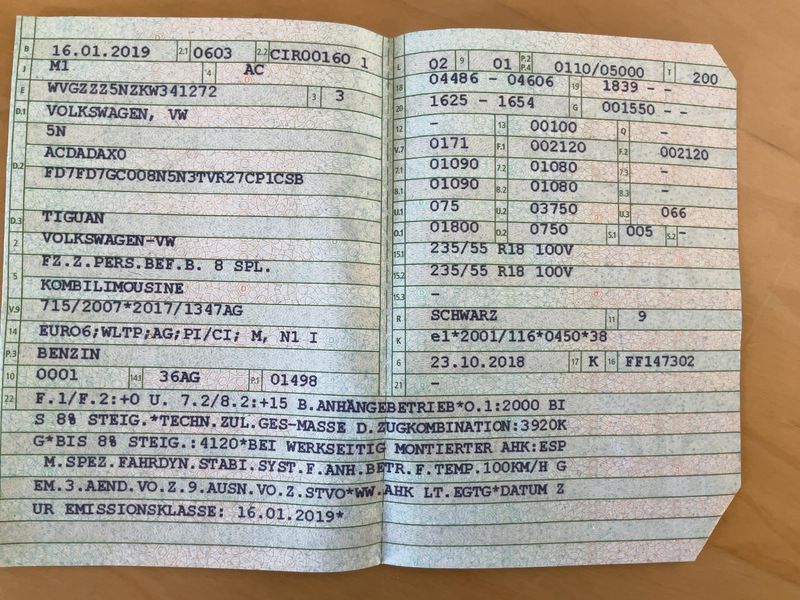 B 16.01.2019 2.1 0603 2.2 CIR00160 1
J M1 4 AC
E WVGZZZ5NZKW341272 3 3
D.1 VOLKSWAGEN, VW
5N
D.2 ACDADAX0
FD7FD7GC008N5N3TVR27CP1CSB
D.3 TIGUAN
2 VOLKSWAGEN-VW
5 FZ.Z.PERS.BEF.B. 8 SPL.
KOMBILIMOUSINE
V.9 715/2007*2017/1347AG
14 EURO6;WLTP;AG;PI/CI; M, N1 I
P.3 BENZIN
10 0001 14.1 36AG P.1 01498
L 02 9 01 P.2 P.4 0110/05000 T 200
18 04486 - 04606 19 1839 - -
20 1625 - 1654 G 001550 - -
12 - 13 00100 Q -
V.7 0171 F.1 002120 F.2 002120
7.1 01090 7.2 01080 7.3 -
8.1 01090 8.2 01080 8.3 -
U.1 075 U.2 03750 U.3 066
O.1 01800 O.2 0750 S.1 005 S.2 -
15.1 235/55 R18 100V
15.2 235/55 R18 100V
15.3 -
R SCHWARZ 11 9
K e1*2001/116*0450*38
6 23.10.2018 17 K 16 FF147302
21 -
22 F.1/F.2:+0 U. 7.2/8.2:+15 B.ANHÄNGEBETRIEB*O.1:2000 BI
S 8% STEIG.*TECHN.ZUL.GES-MASSE D.ZUGKOMBINATION:3920K
G*BIS 8% STEIG.:4120*BEI WERKSEITIG MONTIERTER AHK:ESP
M.SPEZ.FAHRDYN.STABI.SYST.F.ANH.BETR.F.TEMP.100KM/H G
EM.3.AEND.VO.Z.9.AUSN.VO.Z.STVO*WW.AHK LT.EGTG*DATUM Z
UR EMISSIONSKLASSE: 16.01.2019*